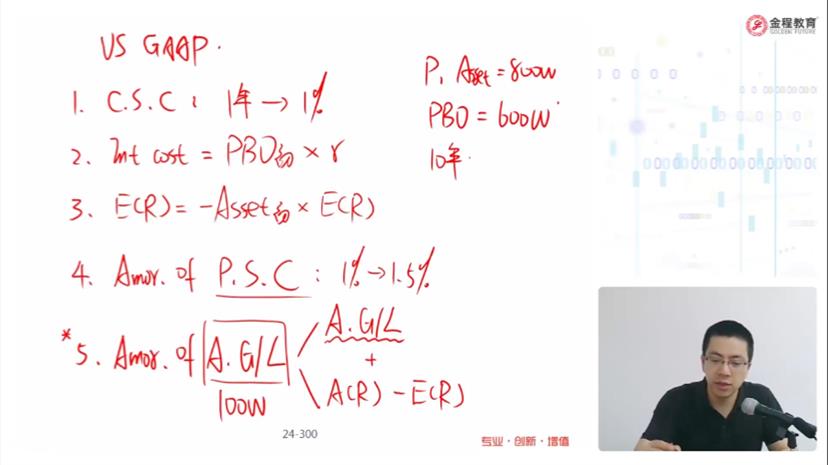 US GAAP.
1. C.S.C: 1年→1%
2. Int cost = PBO初×r
3. E(R) = -Asset初×E(R)
4. Amor. of P.S.C: 1%→1.5%
*5. Amor. of A.G/L
100W
A.G/L
+
A(R) - E(R)
P. Asset = 800W
PBO = 600W
10年.
金程教育
GOLDEN FUTURE
24-300
专业·创新·增值